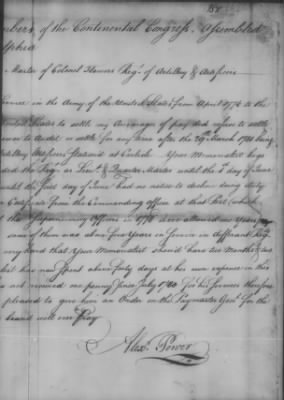 mbers of the Continental Congress, Assembled
lphia
Master of Colonel Flowers Reg.t of Artillery & Artificers
Service in the Army of the United States from April 1776 to the
United States to settle my Arrearages of pay did refuse to settle
to Audit or settle for any time after the 29 March 1780 being
Artillery Artificers Stationed at Carlisle Your Memorialist begs
the Reg.t as Lieu.t & Quarter Master until the 1 day of June
until the first day of June had no notice to decline doing duty
Certificate from the Commanding officer at that Post (which
the Supernumery Officers in 1778 were allowed one Years pay
some of them was above two Years in Service in different Reg
that Your Memorialist should have two Months &
has now spent above forty days at his own expence in this
not received one penny since July 1780 for his Services therefore
pleased to give him an Order on the Paymaster Gen.l for the
bound will ever Pray
Alex.r Power